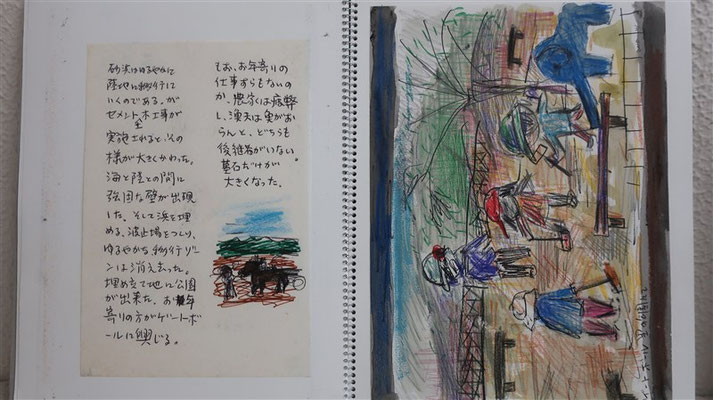 砂浜はゆるやかに
陸地に移行して
いくのである。が
セメント木工事が
実施されると、その
様が大きくかわった。
海と陸との間に
強固な壁が出現
した。そして浜を埋
める、波止場をつくり、
ゆるやかな移行ゾー
ンは消え去った。
埋め立て地に公園
が出来た。お年
寄りの方がゲートボ
ールに興じる。
もお、お年寄りの
仕事すらもないの
か、農家は疲弊
し、漁夫は実がお
らんと、どちらも
後継者がいない。
墓石だけが
大きくなった。